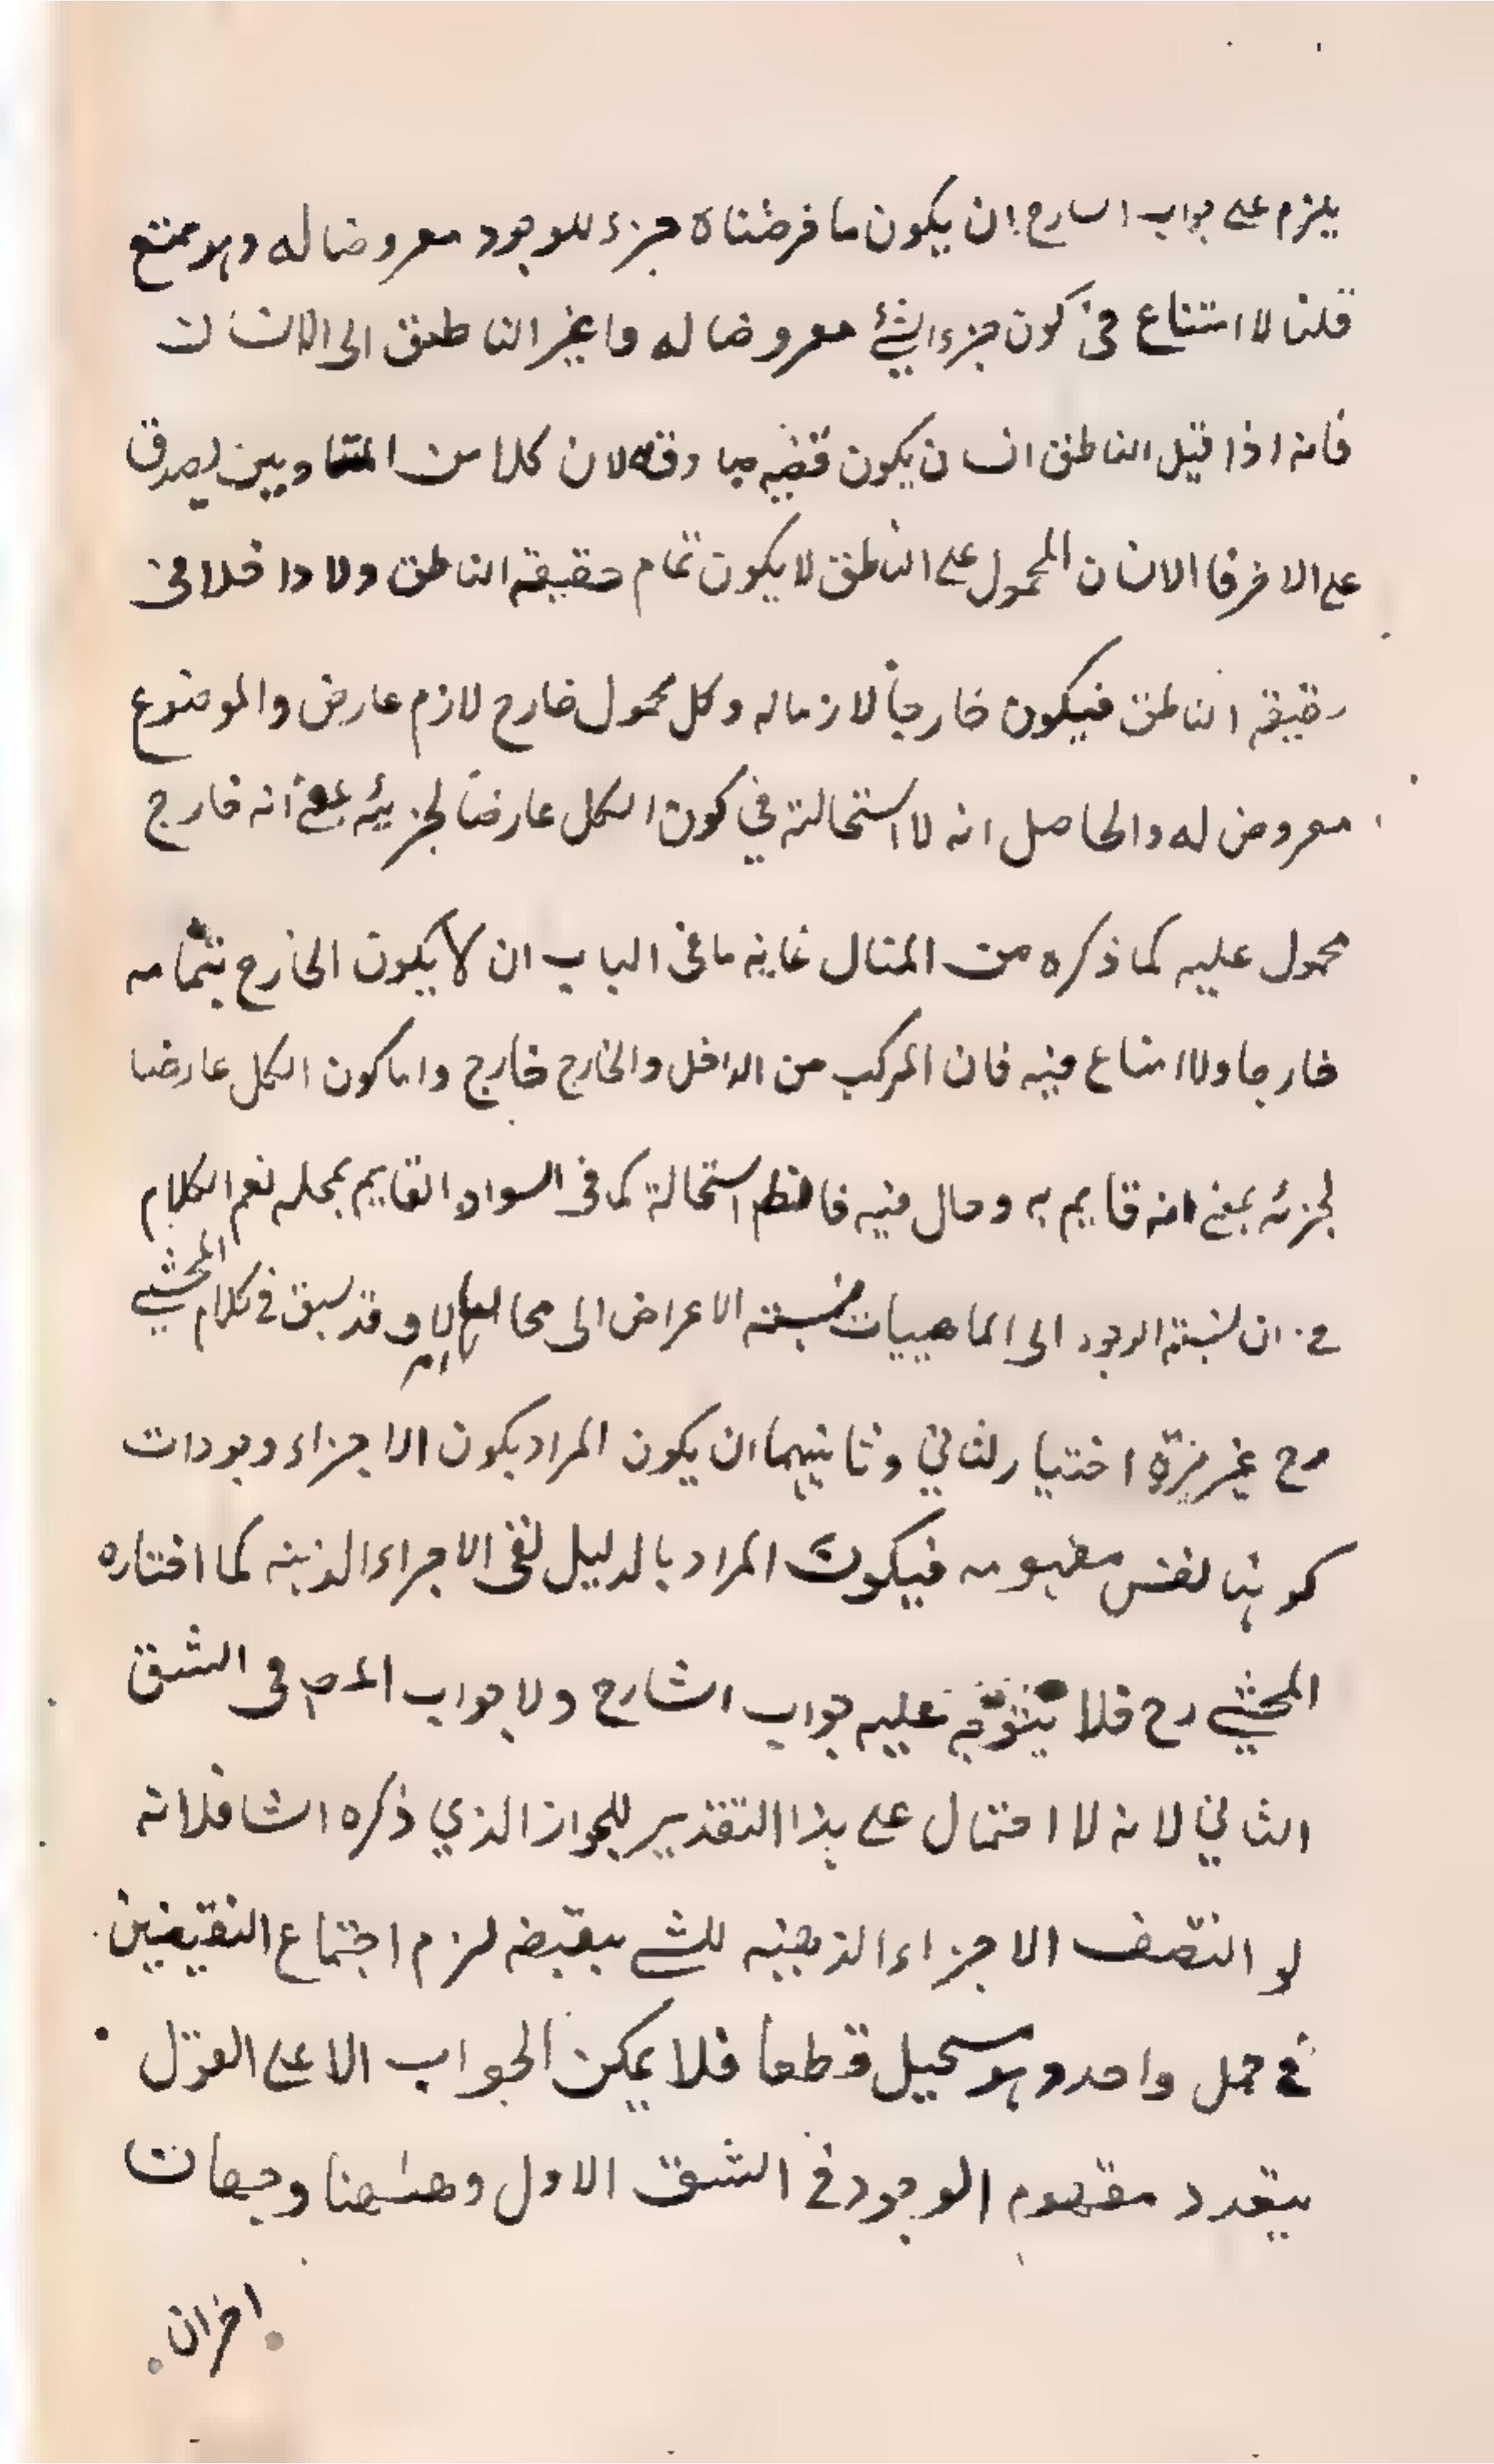 يلزم على جواب الشارح ان يكون ما فرضناه جزء للوجود معروضا له وهو ممتنع
قلنا لا امتناع في كون جزء الشئ معروضا له واعتبر الناطق الى الانسان
فانه اذا قيل الناطق انسان يكون قضيه صادقه لان كلا من المتساويين يصدق
على الاخر فالانسان المحمول على الناطق لا يكون تمام حقيقه الناطق ولا داخلا في
حقيقه الناطق فيكون خارجاً لازما له وكل محمول خارج لازم عارض والموضوع
معروض له والحاصل انه لا استحالته في كون الكل عارضاً لجزيئه بمعنى انه خارج
محمول عليه كما ذكره من المثال غايه ما في الباب ان لا يكون الخارج بتمامه
خارجا ولا امتناع فيه فان المركب من الداخل والخارج خارج واما كون الكل عارضا
لجزئه بمعنى انه قايم به وحال فيه فالظم استحالة كما في السواد القايم بمحله نعم الكلام
في ان نسبته الوجود الى الماهييات نسبته الاعراض الى محالها ام لا وقد سبق في كلام المحشي
رح غير مرة اختيار الثاني وثانيهما ان يكون المراد بكون الاجزاء وجودات
كونها نفس مفهومه فيكون المراد بالدليل نفى الاجزاء الذهنيه كما اختاره
المحشي رح فلا يتوجه عليه جواب الشارح ولا جواب المص في الشق
الثاني لانه لا احتمال على هذا التقدير للجواز الذي ذكره الشا فلانه
لو اتصف الاجزاء الذهنيه للشي بنقيضه لزم اجتماع النقيضين
في حمل واحد وهو مستحيل قطعا فلا يمكن الجواب الا على القول
بتعدد مفهوم الوجود في الشق الاول وههنا وجهان
اخران